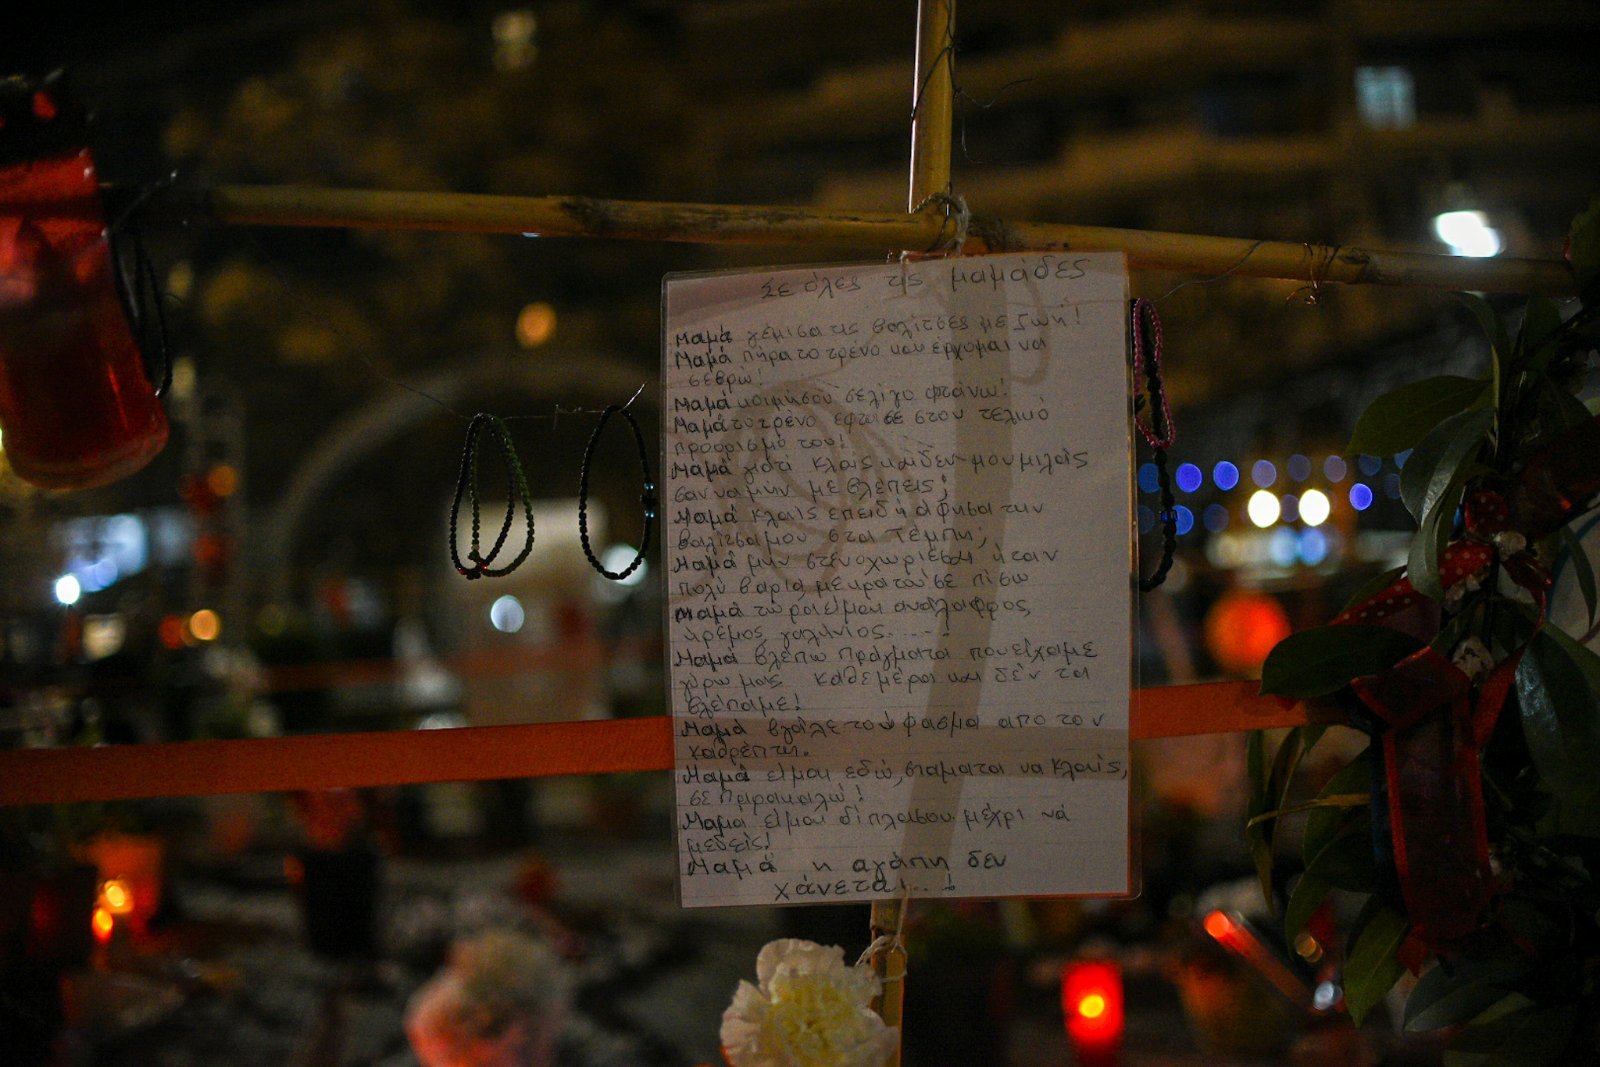 Σε όλες τις μαμάδες
Μαμά γέμισα τις βαλίτσες με ζωή!
Μαμά πήρα το τρένο και έρχομαι να
σεβρώ!
Μαμά κοιμήσου σε λίγο φτάνω!
Μαμά το τρένο έφτασε στον τελικό
προορισμό του!
Μαμά γιατί κλαις και δεν μου μιλάς
σαν να μην με βλέπεις;
Μαμά κλαις επειδή άφησα την
βαλίτσα μου στα Τέμπη;
Μαμά μην στενοχωριέσαι ήταν
πολύ βαριά, με κρατούσε πίσω
Μαμά τώρα είμαι ανάλαφρος,
ήρεμος, γαλήνιος.....
Μαμά βλέπω πράγματα που είχαμε
γύρω μας καθεμέρα και δέν τα
βλέπαμε!
Μαμά βγάλε το φάσμα απο τον
καθρέπτη.
Μαμά είμαι εδώ, σταματα να κλαίς,
σε παρακαλώ!
Μαμά είμαι δίπλα σου μέχρι νά
Μαμά η αγάπη δεν
χάνεται..!